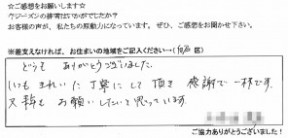 ☆ご感想をお願いします☆
クジーズンの接客はいかがでしたか？
お客様の声が、私たちの原動力になっています。ぜひ、ご感想をお聞かせ下さい。
※差支えなければ、お住まいの地域をご記入ください→( 区)
どうも ありがとうございました。
いつも きれいに 丁寧にして 頂き 感謝で 一杯です。
又 お願いしたいと思っています。
ご協力ありがとうございました！